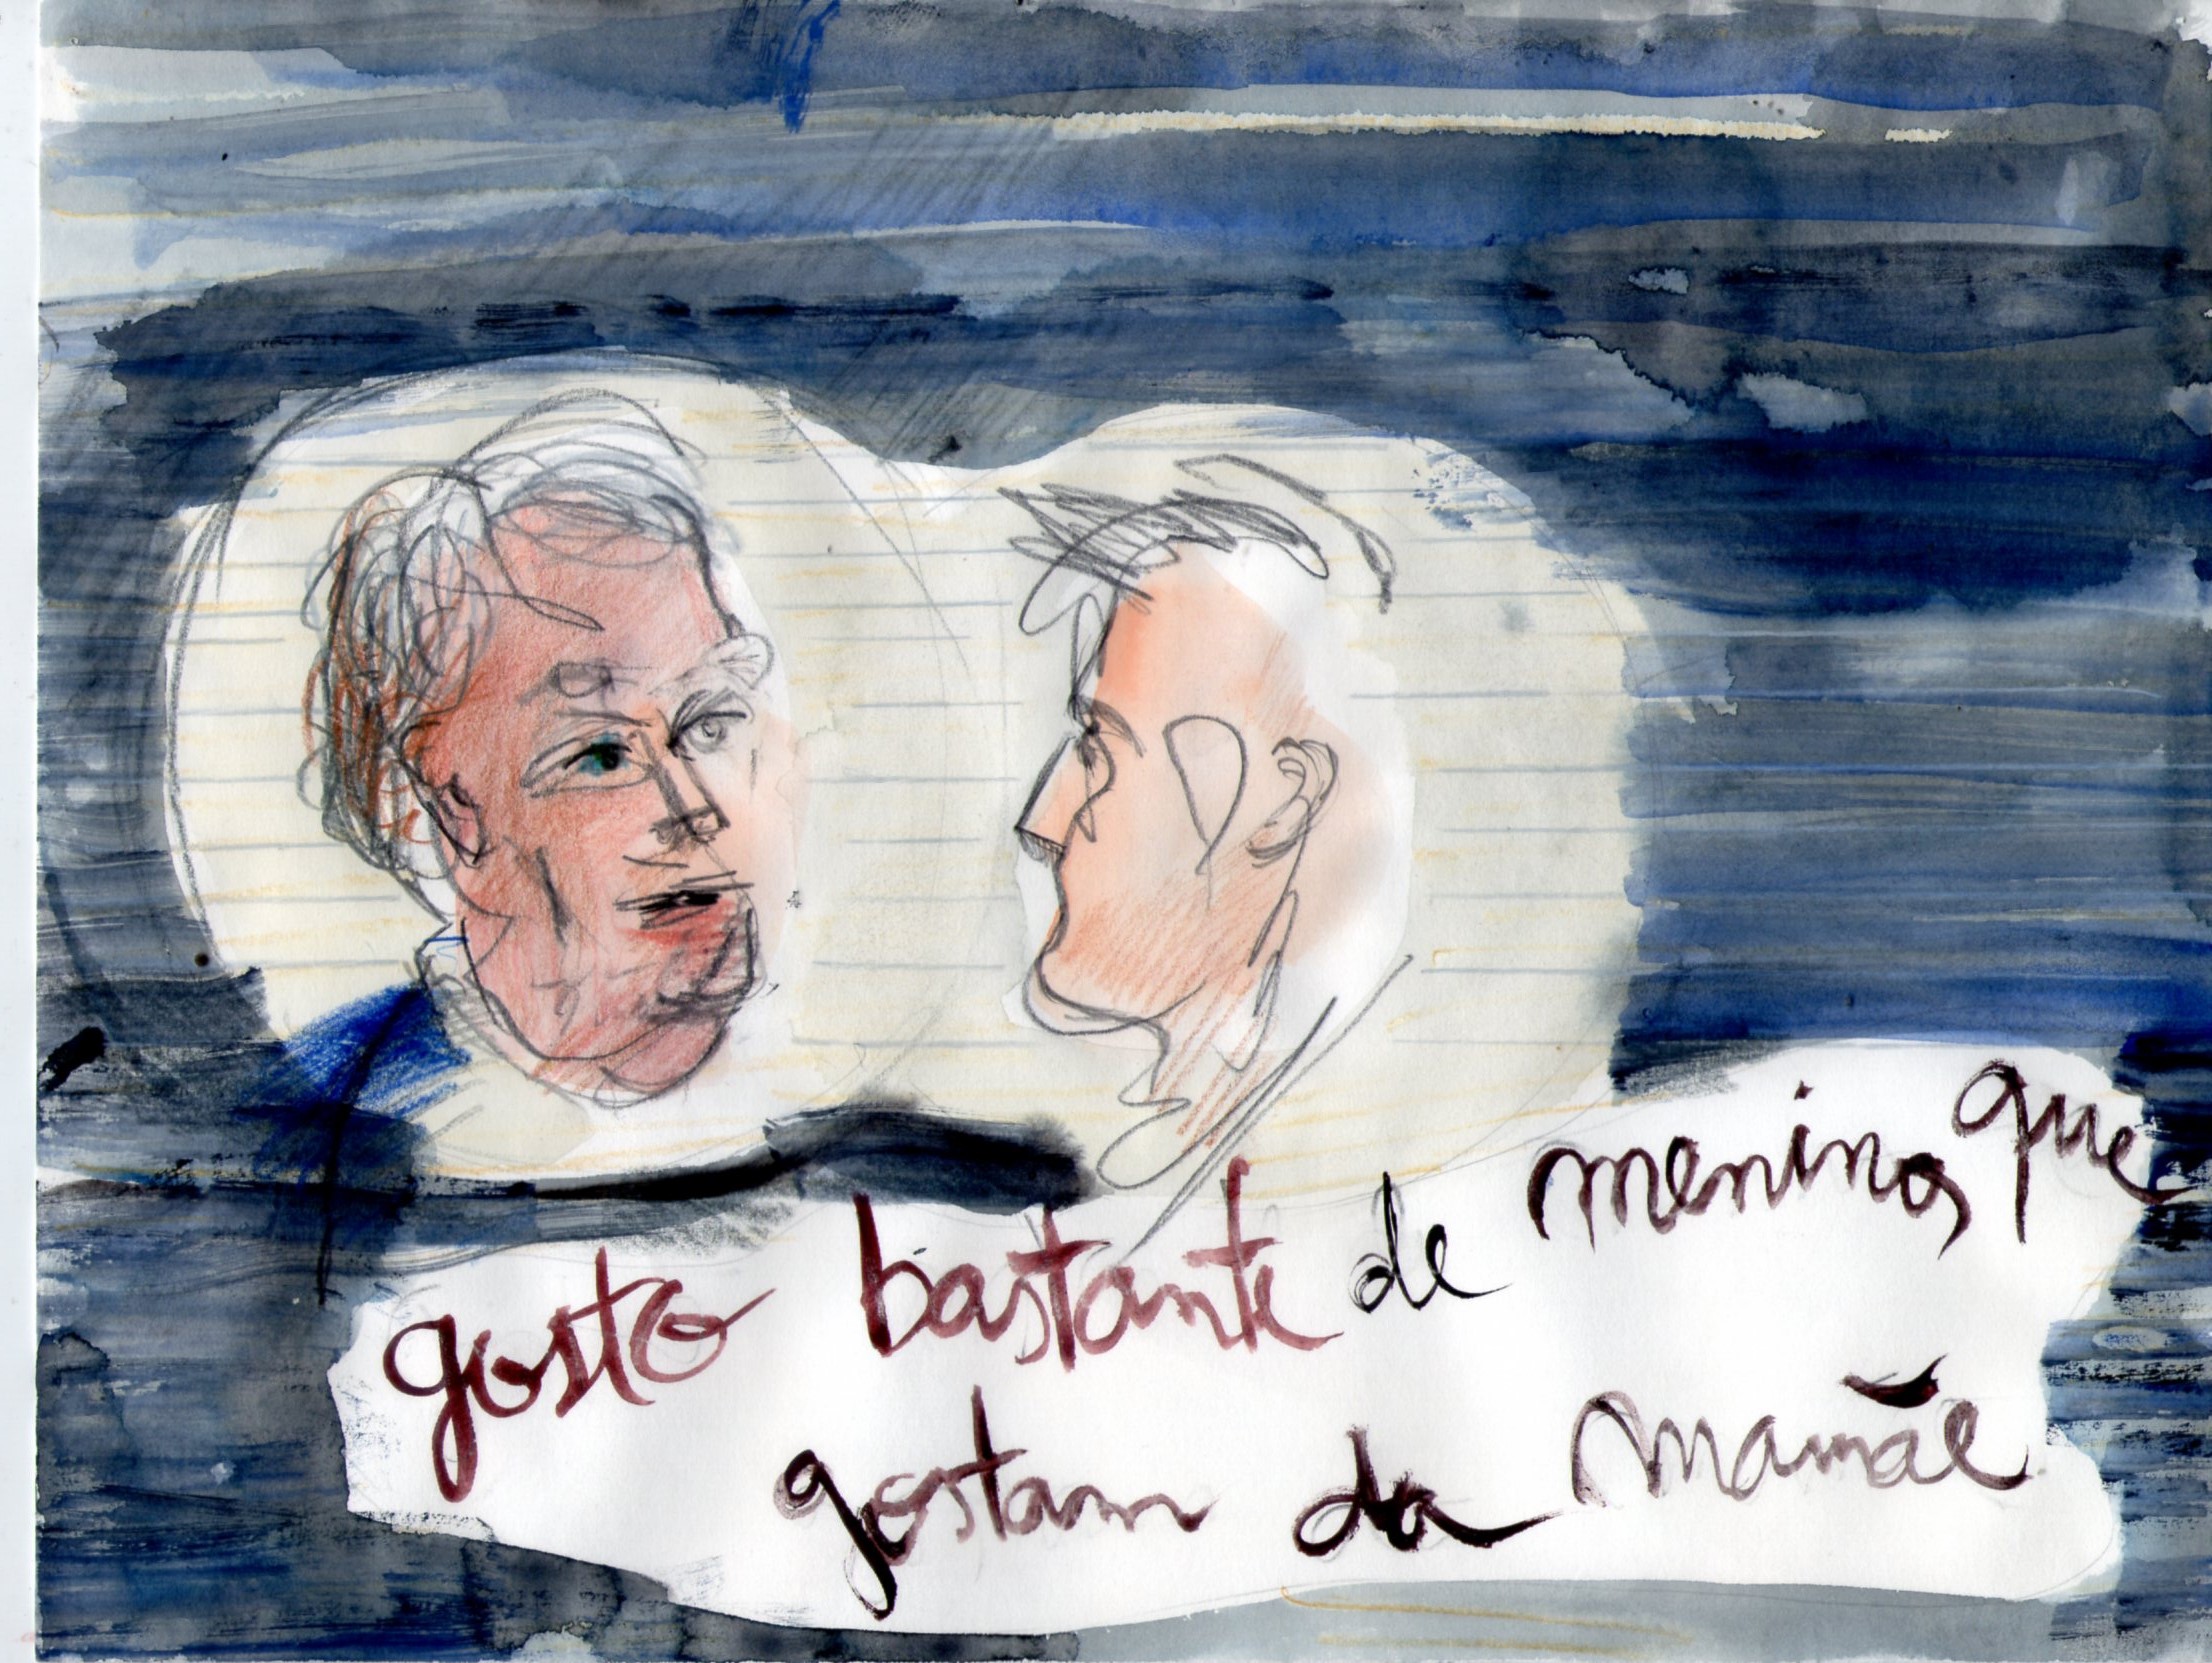 gosto bastante de meninos que
gostam da mamãe